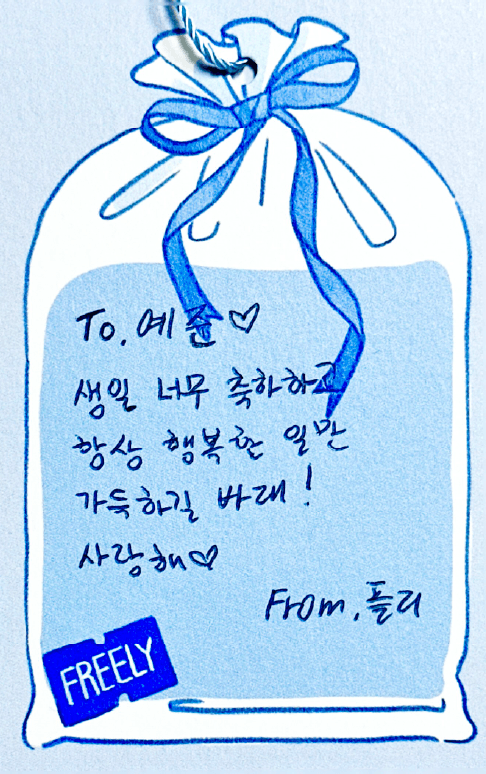 To. 예준♡
생일 너무 축하하고
항상 행복한 일만
가득하길 바래!
사랑해♡
From. 플리
FREELY